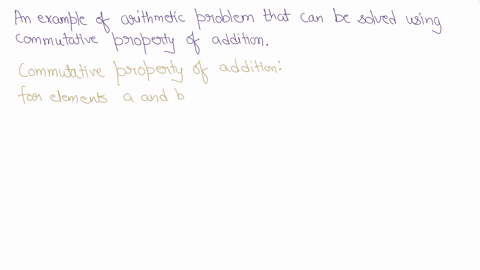 An example of arithmetic problem that can be solved using
commutative property of addition.
Commutative property of addition:
for elements a and b